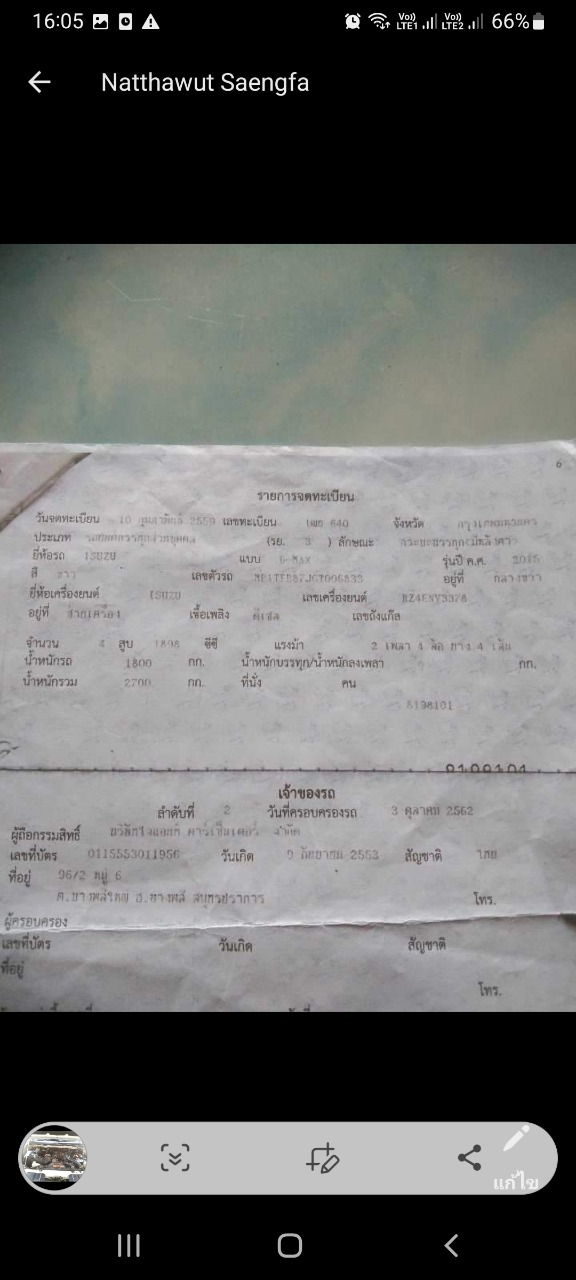 16:05
Vo) LTE1 Vo) LTE2 66%
Natthawut Saengfa
6
รายการจดทะเบียน
วันจดทะเบียน 10 กุมภาพันธ์ 2559 เลขทะเบียน 640 จังหวัด กรุงเทพมหานคร
ประเภท รถยนต์บรรทุกส่วนบุคคล (รย. 3 ) ลักษณะ กระบะบรรทุก
ยี่ห้อรถ ISUZU แบบ D-MAX รุ่นปี ค.ศ. 2015
สี ขาว เลขตัวรถ อยู่ที่ กลางขวา
ยี่ห้อเครื่องยนต์ ISUZU เลขเครื่องยนต์ RZ4ENY3378
อยู่ที่ ซ้ายเครื่อง เชื้อเพลิง ดีเซล เลขถังแก๊ส
จำนวน 4 สูบ 1898 ซีซี แรงม้า 2 เพลา 4 ล้อ ยาง 4 เส้น
น้ำหนักรถ 1800 กก. น้ำหนักบรรทุก/น้ำหนักลงเพลา กก.
น้ำหนักรวม 2700 กก. ที่นั่ง คน
8198101
เจ้าของรถ
ลำดับที่ 2 วันที่ครอบครองรถ 3 ตุลาคม 2562
ผู้ถือกรรมสิทธิ์ บริษัท คาร์เซ็นเตอร์ จำกัด
เลขที่บัตร 0115553011956 วันเกิด 9 กันยายน 2553 สัญชาติ ไทย
ที่อยู่ 96/2 หมู่ 6
ต.บางพลีใหญ่ อ.บางพลี สมุทรปราการ โทร.
ผู้ครอบครอง
เลขที่บัตร วันเกิด สัญชาติ
ที่อยู่
โทร.
แก้ไข